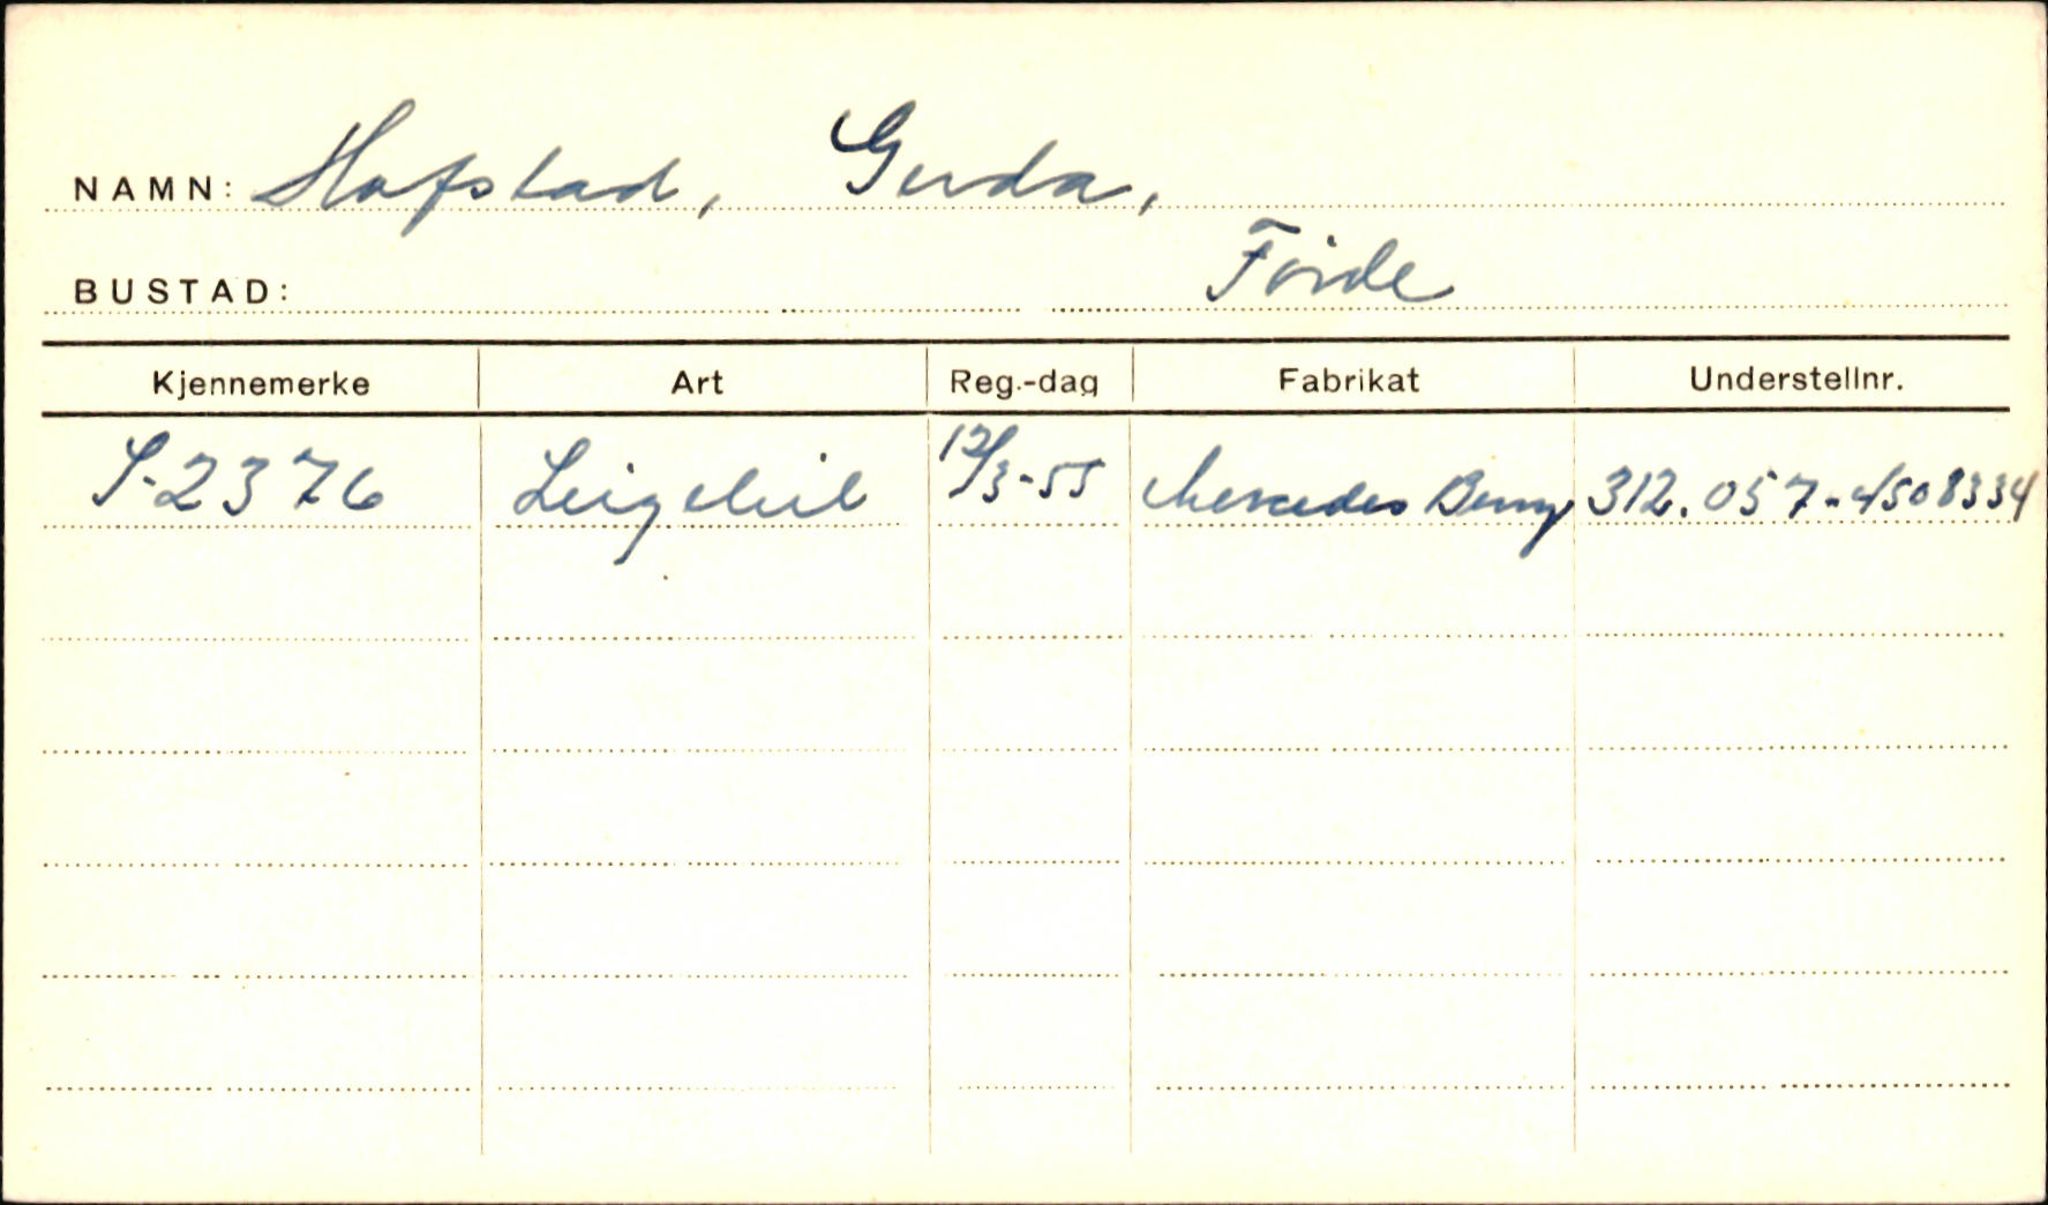 NAMN: Hofstad, Gerda,
BUSTAD: Förde
Kjennemerke Art Reg.-dag Fabrikat Understellnr.
S-2376 Leigebil 12/3-55 Mercedes Benz 312.057-4508334